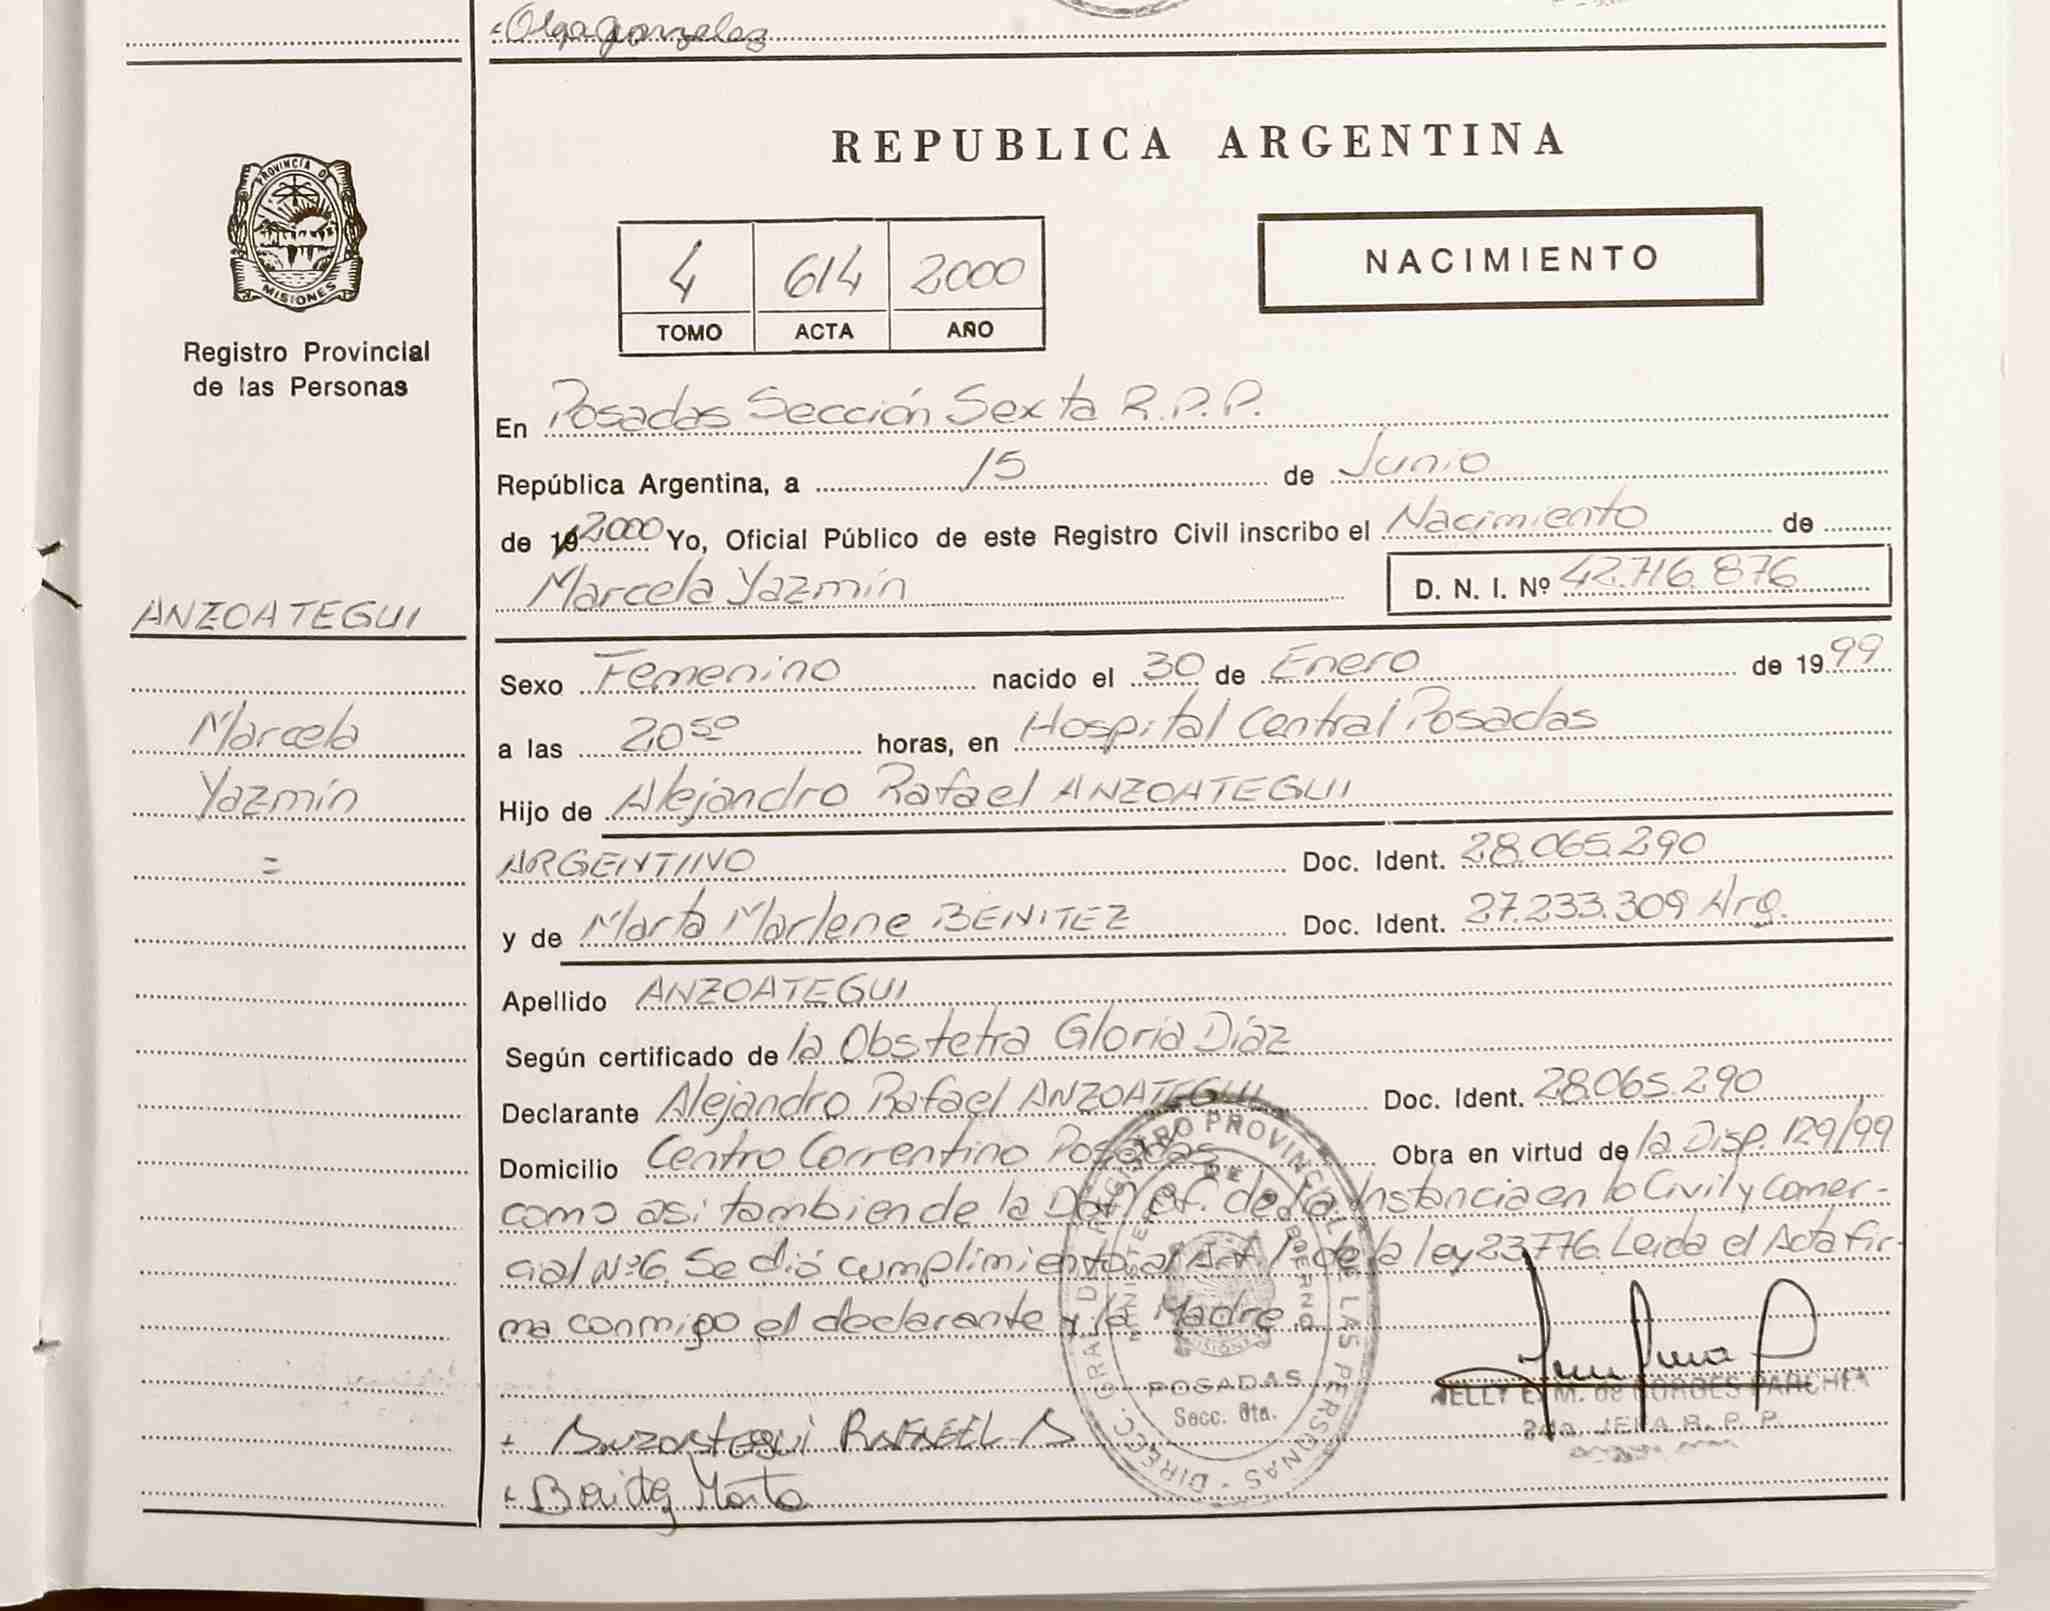 Olga gonzalez
REPUBLICA ARGENTINA
PROVINCIA DE
MISIONES
Registro Provincial
de las Personas
4 614 2000
TOMO ACTA AÑO
NACIMIENTO
En Posadas Sección Sexta R.P.P.
República Argentina, a 15 de Junio
de 19 2000 Yo, Oficial Público de este Registro Civil inscribo el Nacimiento de
Marcela Yazmín D. N. I. Nº 42.716.876
ANZOATEGUI
Marcela
Yazmín
=
Sexo Femenino nacido el 30 de Enero de 19 99
a las 20⁵⁰ horas, en Hospital Central Posadas
Hijo de Alejandro Rafael ANZOATEGUI
ARGENTINO Doc. Ident. 28.065.290
y de Marta Marlene BENITEZ Doc. Ident. 27.233.309 Arg.
Apellido ANZOATEGUI
Según certificado de la Obstetra Gloria Díaz
Declarante Alejandro Rafael ANZOATEGUI Doc. Ident. 28.065.290
Domicilio Centro Correntino Posadas Obra en virtud de la Disp. 129/99
como asi tambien de la de la Instancia en lo Civil y Comer-
cial Nº6. Se dió cumplimiento al Art 1º de la ley 23776. Leida el Acta fir-
ma conmigo el declarante y la Madre
DIRECC. GRAL. DEL REGISTRO PROVINCIAL DE LAS PERSONAS
MINISTERIO DE GOBIERNO
MISIONES
POSADAS
Secc. 6ta.
NELLY E. M. de BORGES PARCHEN
2da. JEFA R. P. P.
+ Anzoategui RAFAEL A
+ Benitez Marta